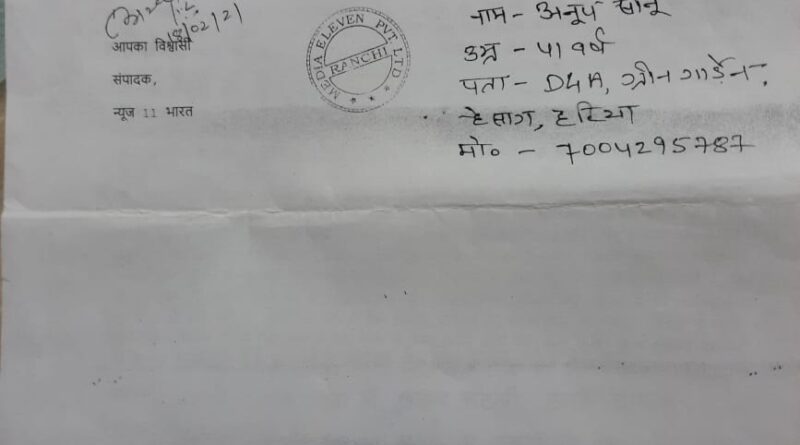 18/02/21
आपका विश्वासी
संपादक,
न्यूज 11 भारत
MEDIA ELEVEN PVT LTD
RANCHI
नाम - अनूप सोनू
उम्र - ५१ वर्ष
पता - D4A, ग्रीन गार्डेन,
हेसाग, हटिया
मो० - 7004295787